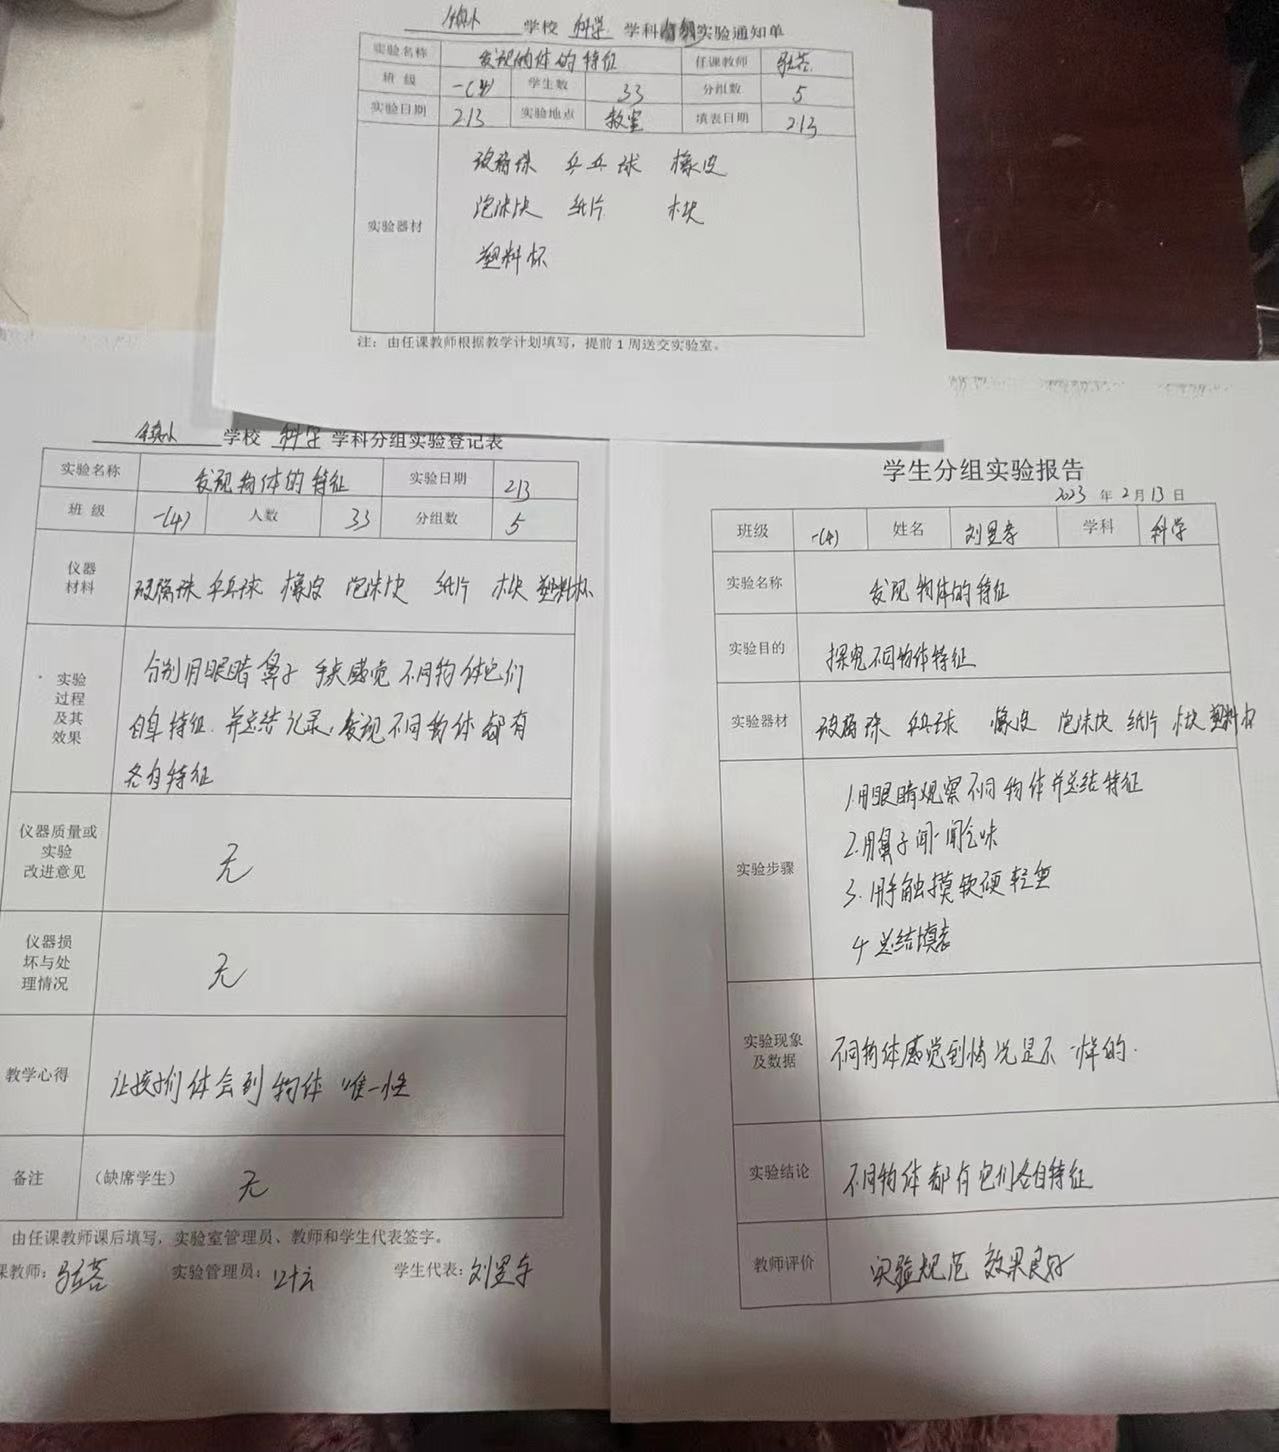 学校 科学 学科分组实验通知单
实验名称 发现物体的特征 任课教师
班 级 一(4) 学生数 33 分组数 5
实验日期 2.13 实验地点 教室 填表日期 2.13
实验器材
玻璃珠 乒乓球 橡皮
泡沫块 纸片 木块
塑料杯
注：由任课教师根据教学计划填写，提前 1 周送交实验室。
学校 科学 学科分组实验登记表
实验名称 发现物体的特征 实验日期 2.13
班 级 一(4) 人数 33 分组数 5
仪器
材料
玻璃珠 乒乓球 橡皮 泡沫块 纸片 木块 塑料杯
实验
过程
及其
效果
分别用眼睛 鼻子 手来感觉 不同物体它们
自身特征. 并总结记录, 发现不同物体都有
各自特征
仪器质量或
实验
改进意见
无
仪器损
坏与处
理情况
无
教学心得 让孩子们体会到物体 唯一性
备注 （缺席学生） 无
由任课教师课后填写，实验室管理员、教师和学生代表签字。
课教师： 实验管理员： 学生代表：
学生分组实验报告
2023 年 2 月 13 日
班级 一(4) 姓名 学科 科学
实验名称 发现物体的特征
实验目的 探究不同物体特征
实验器材 玻璃珠 乒乓球 橡皮 泡沫块 纸片 木块 塑料杯
实验步骤
1.用眼睛观察不同物体并总结特征
2.用鼻子闻一闻气味
3.用手触摸软硬轻重
4 总结填表
实验现象
及数据
不同物体感觉到情况是不一样的.
实验结论 不同物体都有它们各自特征
教师评价 实验规范 效果良好